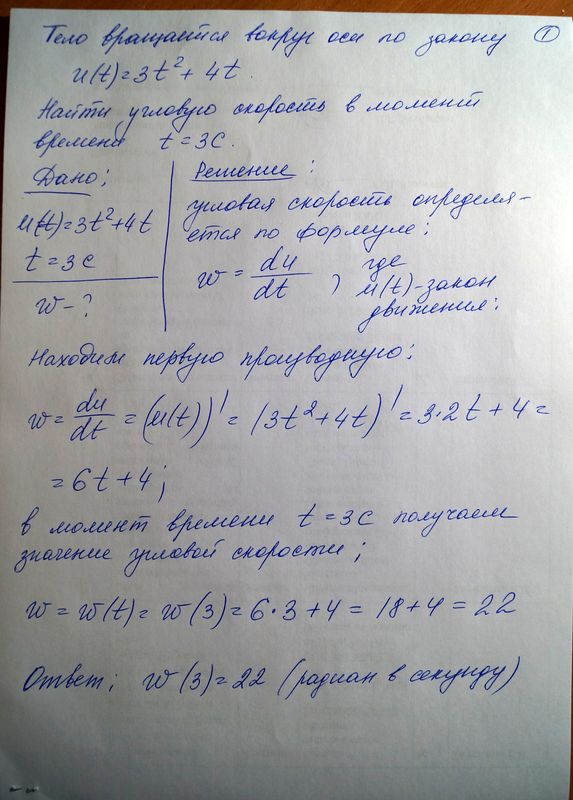 Тело вращается вокруг оси по закону ①
u(t)=3t²+4t.
Найти угловую скорость в момент
времени t=3с.
Дано:
u(t)=3t²+4t
t=3с
w-?
Решение:
угловая скорость определя-
ется по формуле:
w = du/dt, где
u(t)-закон
движения:
Находим первую производную:
w = du/dt = (u(t))' = (3t²+4t)' = 3·2t+4=
=6t+4;
в момент времени t=3с получаем
значение угловой скорости;
w = w(t) = w(3) = 6·3+4 = 18+4 = 22
Ответ: w(3)=22 (радиан в секунду)